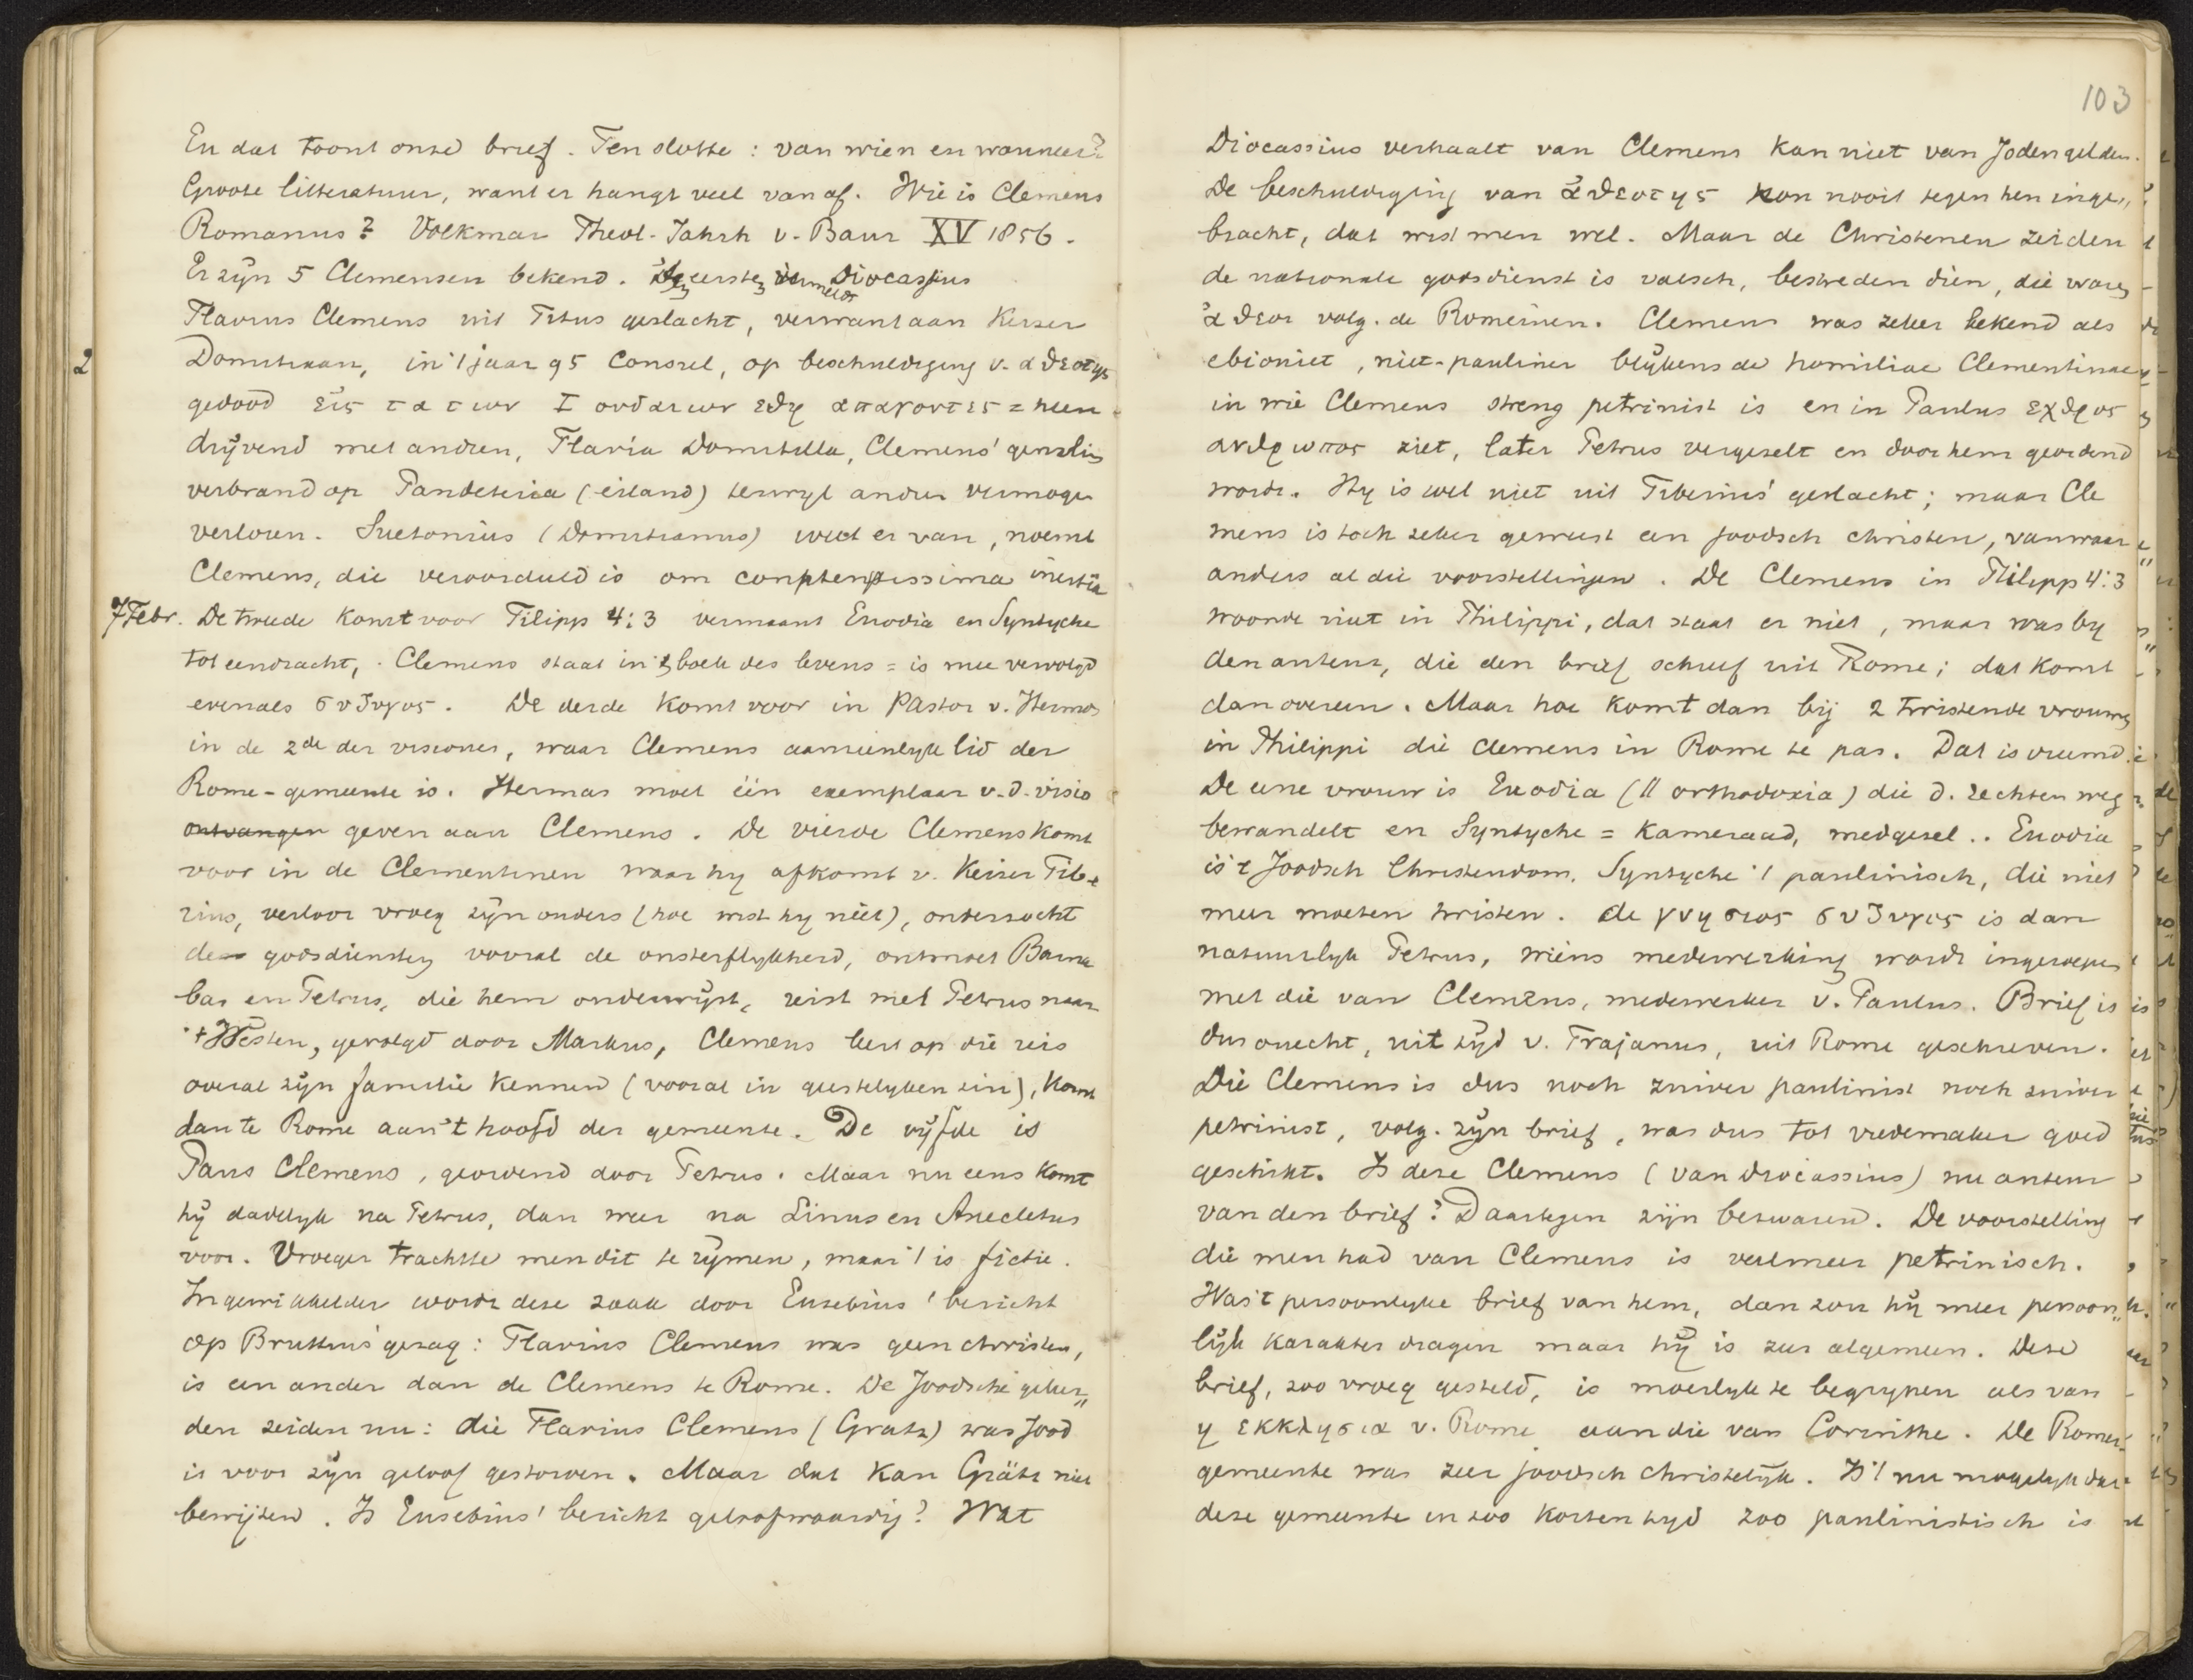 En dat toont onze brief. Ten slotte : van wien en wanneer?
Groote litteratuur, want er hangt veel van af. Wie is Clemens
Romanus? Volkmar Theol. Jahrb v. Baur XV 1856.
Er zijn 5 Clemensen bekend. Den eersten vermeldt Diocassius
Flavius Clemens uit Titus geslacht, verwant aan Keizer
2
Domitiaan, in 't jaar 95 Consul, op beschuldiging v. αθεοτης
gedood εις τα των Ιουδαιων εθη απαγοντες = heen
drijvend met andren, Flavia Domitilla, Clemens' gemalin
verbrand op Pandeteria (eiland) terwyl andre vermogen
verloren. Suetonius (Domitianus) weet er van, noemt
Clemens, die veroordeeld is om comptemptissima inertia
7 Febr. De tweede komt voor Filipp 4:3 vermaant Euodia en Syntyche
tot eendracht, Clemens staat in 't boek des levens = is mee vervolgd
evenals συζυγος. De derde komt voor in Pastor v. Hermas
in de 2de der visiones, waar Clemens aanzienlyk lid der
Rome-gemeente is. Hermas moet één exemplaar v.d. visio
ontvangen geven aan Clemens. De vierde Clemens komt
voor in de Clementinen waar hy afkomt v. Keizer Tibe
rius, verloor vroeg zijn ouders (hoe wist hy niet), onderzocht
de godsdiensten vooral de onsterflykheid, ontmoet Barna
bas en Petrus, die hem onderwijst, reist met Petrus naar
't Westen, gevolgd door Markus, Clemens leert op die reis
overal zijn familie kennen (vooral in geestelyken zin), komt
dan te Rome aan 't hoofd der gemeente. De vijfde is
Paus Clemens, geordend door Petrus. Maar nu eens komt
hij dadelyk na Petrus, dan weer na Linus en Anecletus
voor. Vroeger trachtte men dit te rijmen, maar 't is fictie.
Ingewikkelder wordt deze zaak door Eusebius' bericht
op Bruttius' gezag: Flavius Clemens was geen christen,
is een ander dan de Clemens te Rome. De Joodsche geleer„
den zeiden nu: die Flavius Clemens (Gratz) was Jood
is voor zijn geloof gestorven. Maar dat kan Grätz niet
bewijzen. Is Eusebius' bericht geloofwaardig? Wat
103
Diocassius verhaalt van Clemens kan niet van Joden gelden.
De beschuldiging van ἀθεοτης kon nooit tegen hen inge„
bracht, dat wist men wel. Maar de Christenen zeiden
de nationale godsdienst is valsch, bestreden dien, die waren
ἀθεοι volg. de Romeinen. Clemens was zeker bekend als
ebioniet, niet-pauliner blijkens de homiliae Clementinae
in wie Clemens streng petrinist is en in Paulus εχθρος
ανθρωπος ziet, later Petrus vergezelt en door hem geordend
wordt. Hy is wel niet uit Tiberius' geslacht; maar Cle
mens is toch zeker geweest een joodsch christen, vanwaar
anders al die voorstellingen. De Clemens in Filipp 4:3
woonde niet in Philippi, dat staat er niet, maar was by
den auteur, die den brief schreef uit Rome; dat komt
dan overeen. Maar hoe komt dan bij 2 twistende vrouwen
in Philippi die Clemens in Rome te pas. Dat is vreemd.
De eene vrouw is Euodia (// orthodoxia) die d. rechten weg
bewandelt en Syntyche = kameraad, medgezel.. Euodia
is 't Joodsch Christendom. Syntyche 't paulinisch, die niet
meer moeten twisten. de γνησιος συζυγος is dan
natuurlyk Petrus, wiens medewerking wordt ingeroepen
met die van Clemens, medewerker v. Paulus. Brief is
dus onecht, uit tijd v. Trajanus, uit Rome geschreven.
Die Clemens is dus noch zuiver paulinist noch zuiver
petrinist, volg. zijn brief, was dus tot vredemaker goed
geschikt. Is deze Clemens (van Diocassius) nu auteur
van den brief? Daartegen zijn bezwaren. De voorstelling
die men had van Clemens is veelmeer petrinisch.
Was 't persoonlyke brief van hem, dan zou hij meer persoon„
lijk karakter dragen maar hij is zeer algemeen. Deze
brief, zoo vroeg gesteld, is moeilyk te begrypen als van
η εκκλησια v. Rome aan die van Corinthe. De Rome-
gemeente was zeer joodsch christelijk. Is 't nu mogelyk dat
deze gemeente in zoo korten tyd zoo paulinistisch is